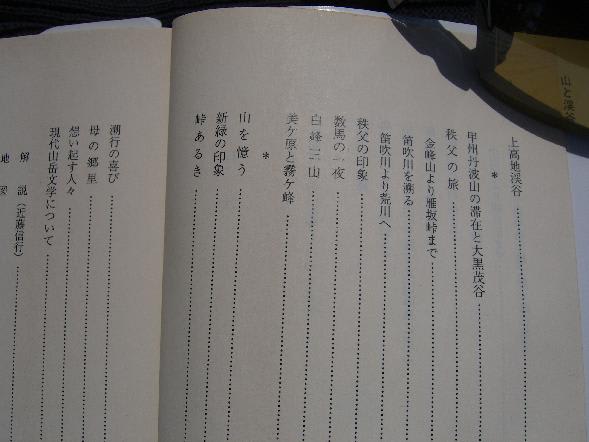 山と渓谷
上高地渓谷
*
甲州丹波山の滞在と大黒茂谷
秩父の旅
金峰山より雁坂峠まで
笛吹川を溯る
笛吹川より荒川へ
秩父の印象
数馬の一夜
白峰三山
美ケ原と霧ケ峰
*
山を憶う
新緑の印象
峠あるき
溯行の喜び
母の郷里
想い起す人々
現代山岳文学について
解説（近藤信行）
地図